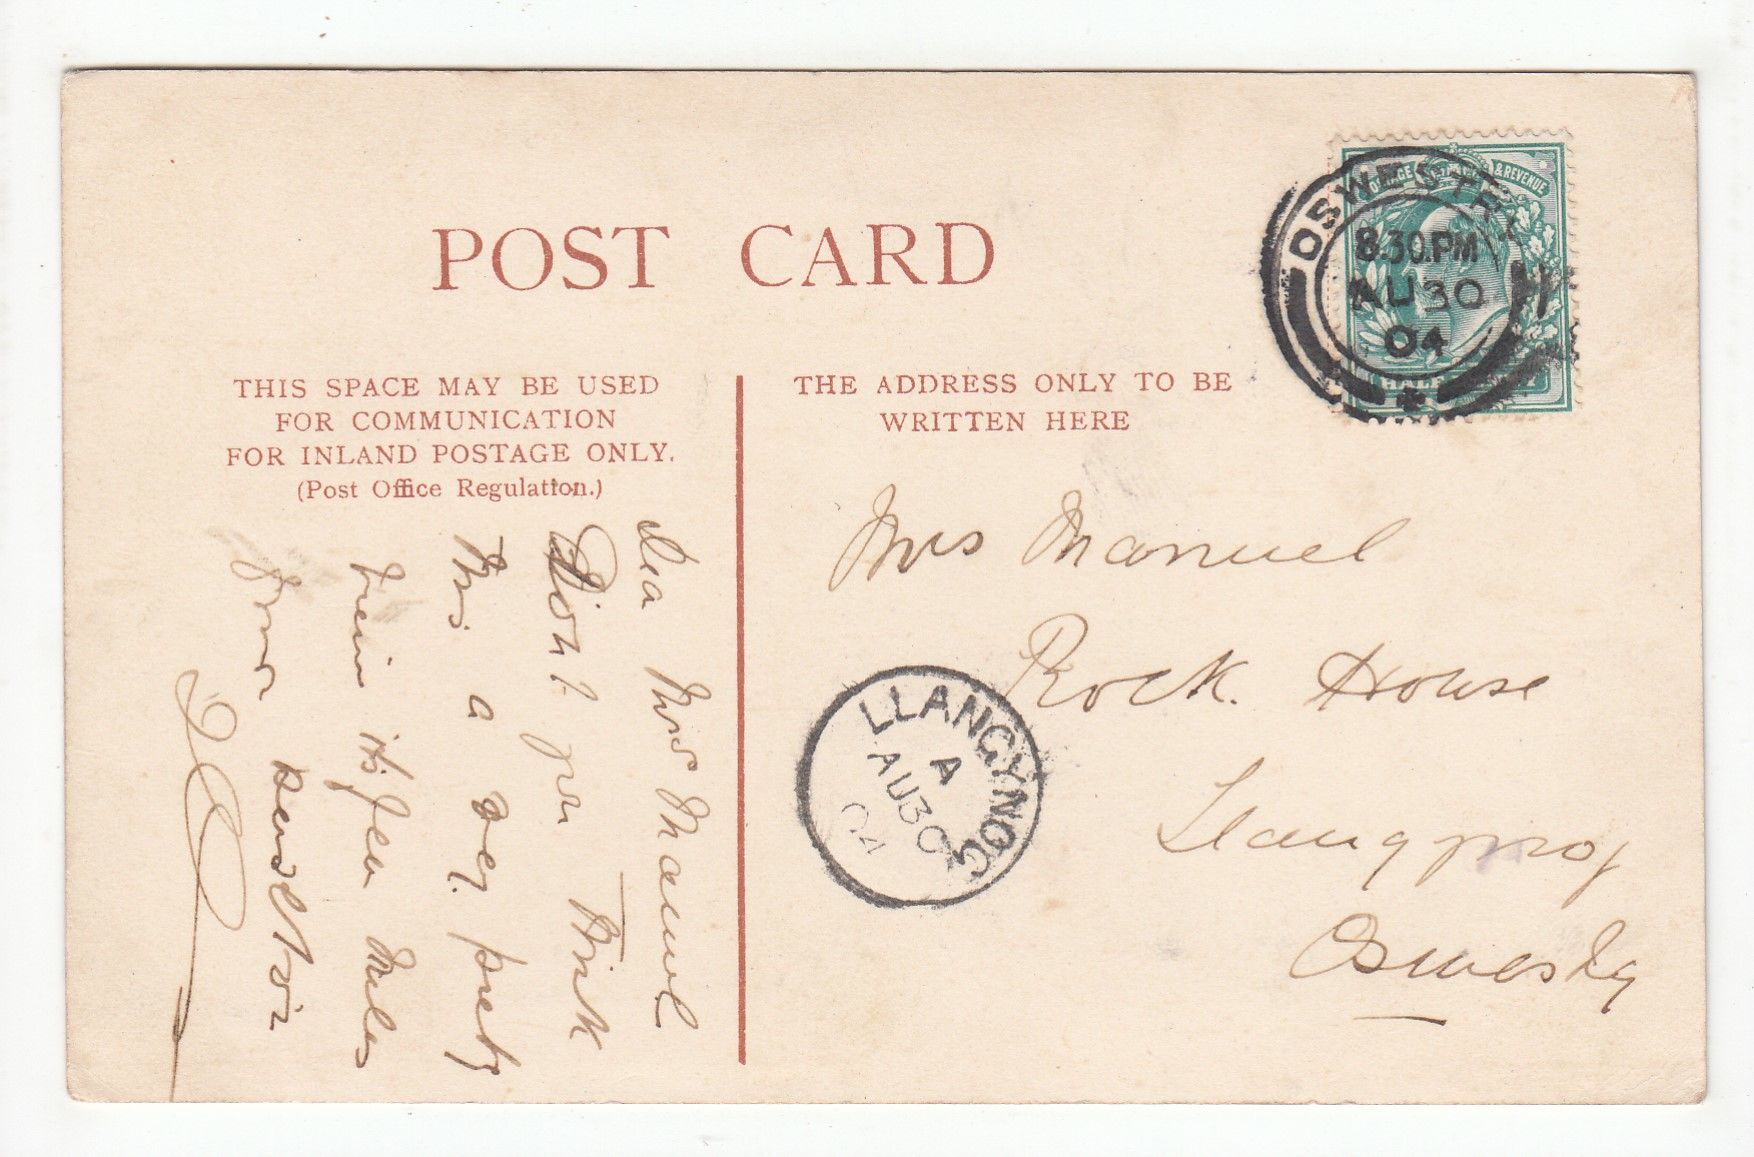 POST CARD
THIS SPACE MAY BE USED
FOR COMMUNICATION
FOR INLAND POSTAGE ONLY.
(Post Office Regulation.)
THE ADDRESS ONLY TO BE
WRITTEN HERE
POSTAGE & REVENUE
HALF
OSWESTRY
8.30.PM
AU 30
04
Mrs Manuel
Rock House
Llangynog
Oswestry
LLANGYNOG
A
AU 30
04
Dea Mrs Manuel
Don't you think
this a very pretty
view its few miles
from